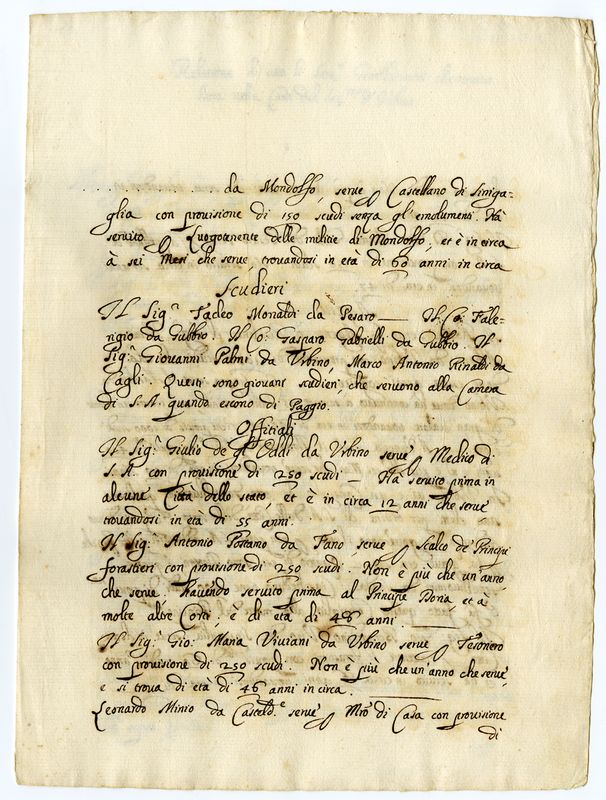 . . . . . . . . . . . da Mondolfo, serve p Castellano di Siniga=
glia con provisione di 150 scudi senza gl' emolumenti. Hà
servito p Luogotenente delle militie di Mondolfo, et è in circa
à sei Mesi che serve, trovandosi in età di 60 anni in circa
Scudieri
Il Sigr Tadeo Monaldi da Pesaro — Il Co: Fale=
rigio da Gubbio. Il Co: Gasparo Gabrielli da Gubbio. Il
Sigr Giovanni Palmi da Urbino, Marco Antonio Rinaldi da
Cagli. Questi sono giovani scudieri, che servono alla Camera
di S. A. quando escono di Paggio.
Offitiali
Il Sigr Giulio de gl' Oddi da Urbino serve p Medico di
S. A. con provisione di 250 scudi — Hà servito prima in
alcune Città dello stato, et è in circa 12 anni che serve
trovandosi in età di 55 anni.
Il Sigr Antonio da Fano serve p Scalco de Principi
forastieri con provisione di 250 scudi. Non è più che un' anno
che serve. Havendo servito prima al Principe Doria, et à
molte altre Corti, è di età di 48 anni.
Il Sigr Gio: Maria Viviani da Urbino serve p Tesoriero
con provisione di 250 scudi. Non è più che un' anno che serve,
e si trova di età di 46 anni in circa.
Leonardo Minio da Casteld.e serve p Mro di Casa con provisione
di